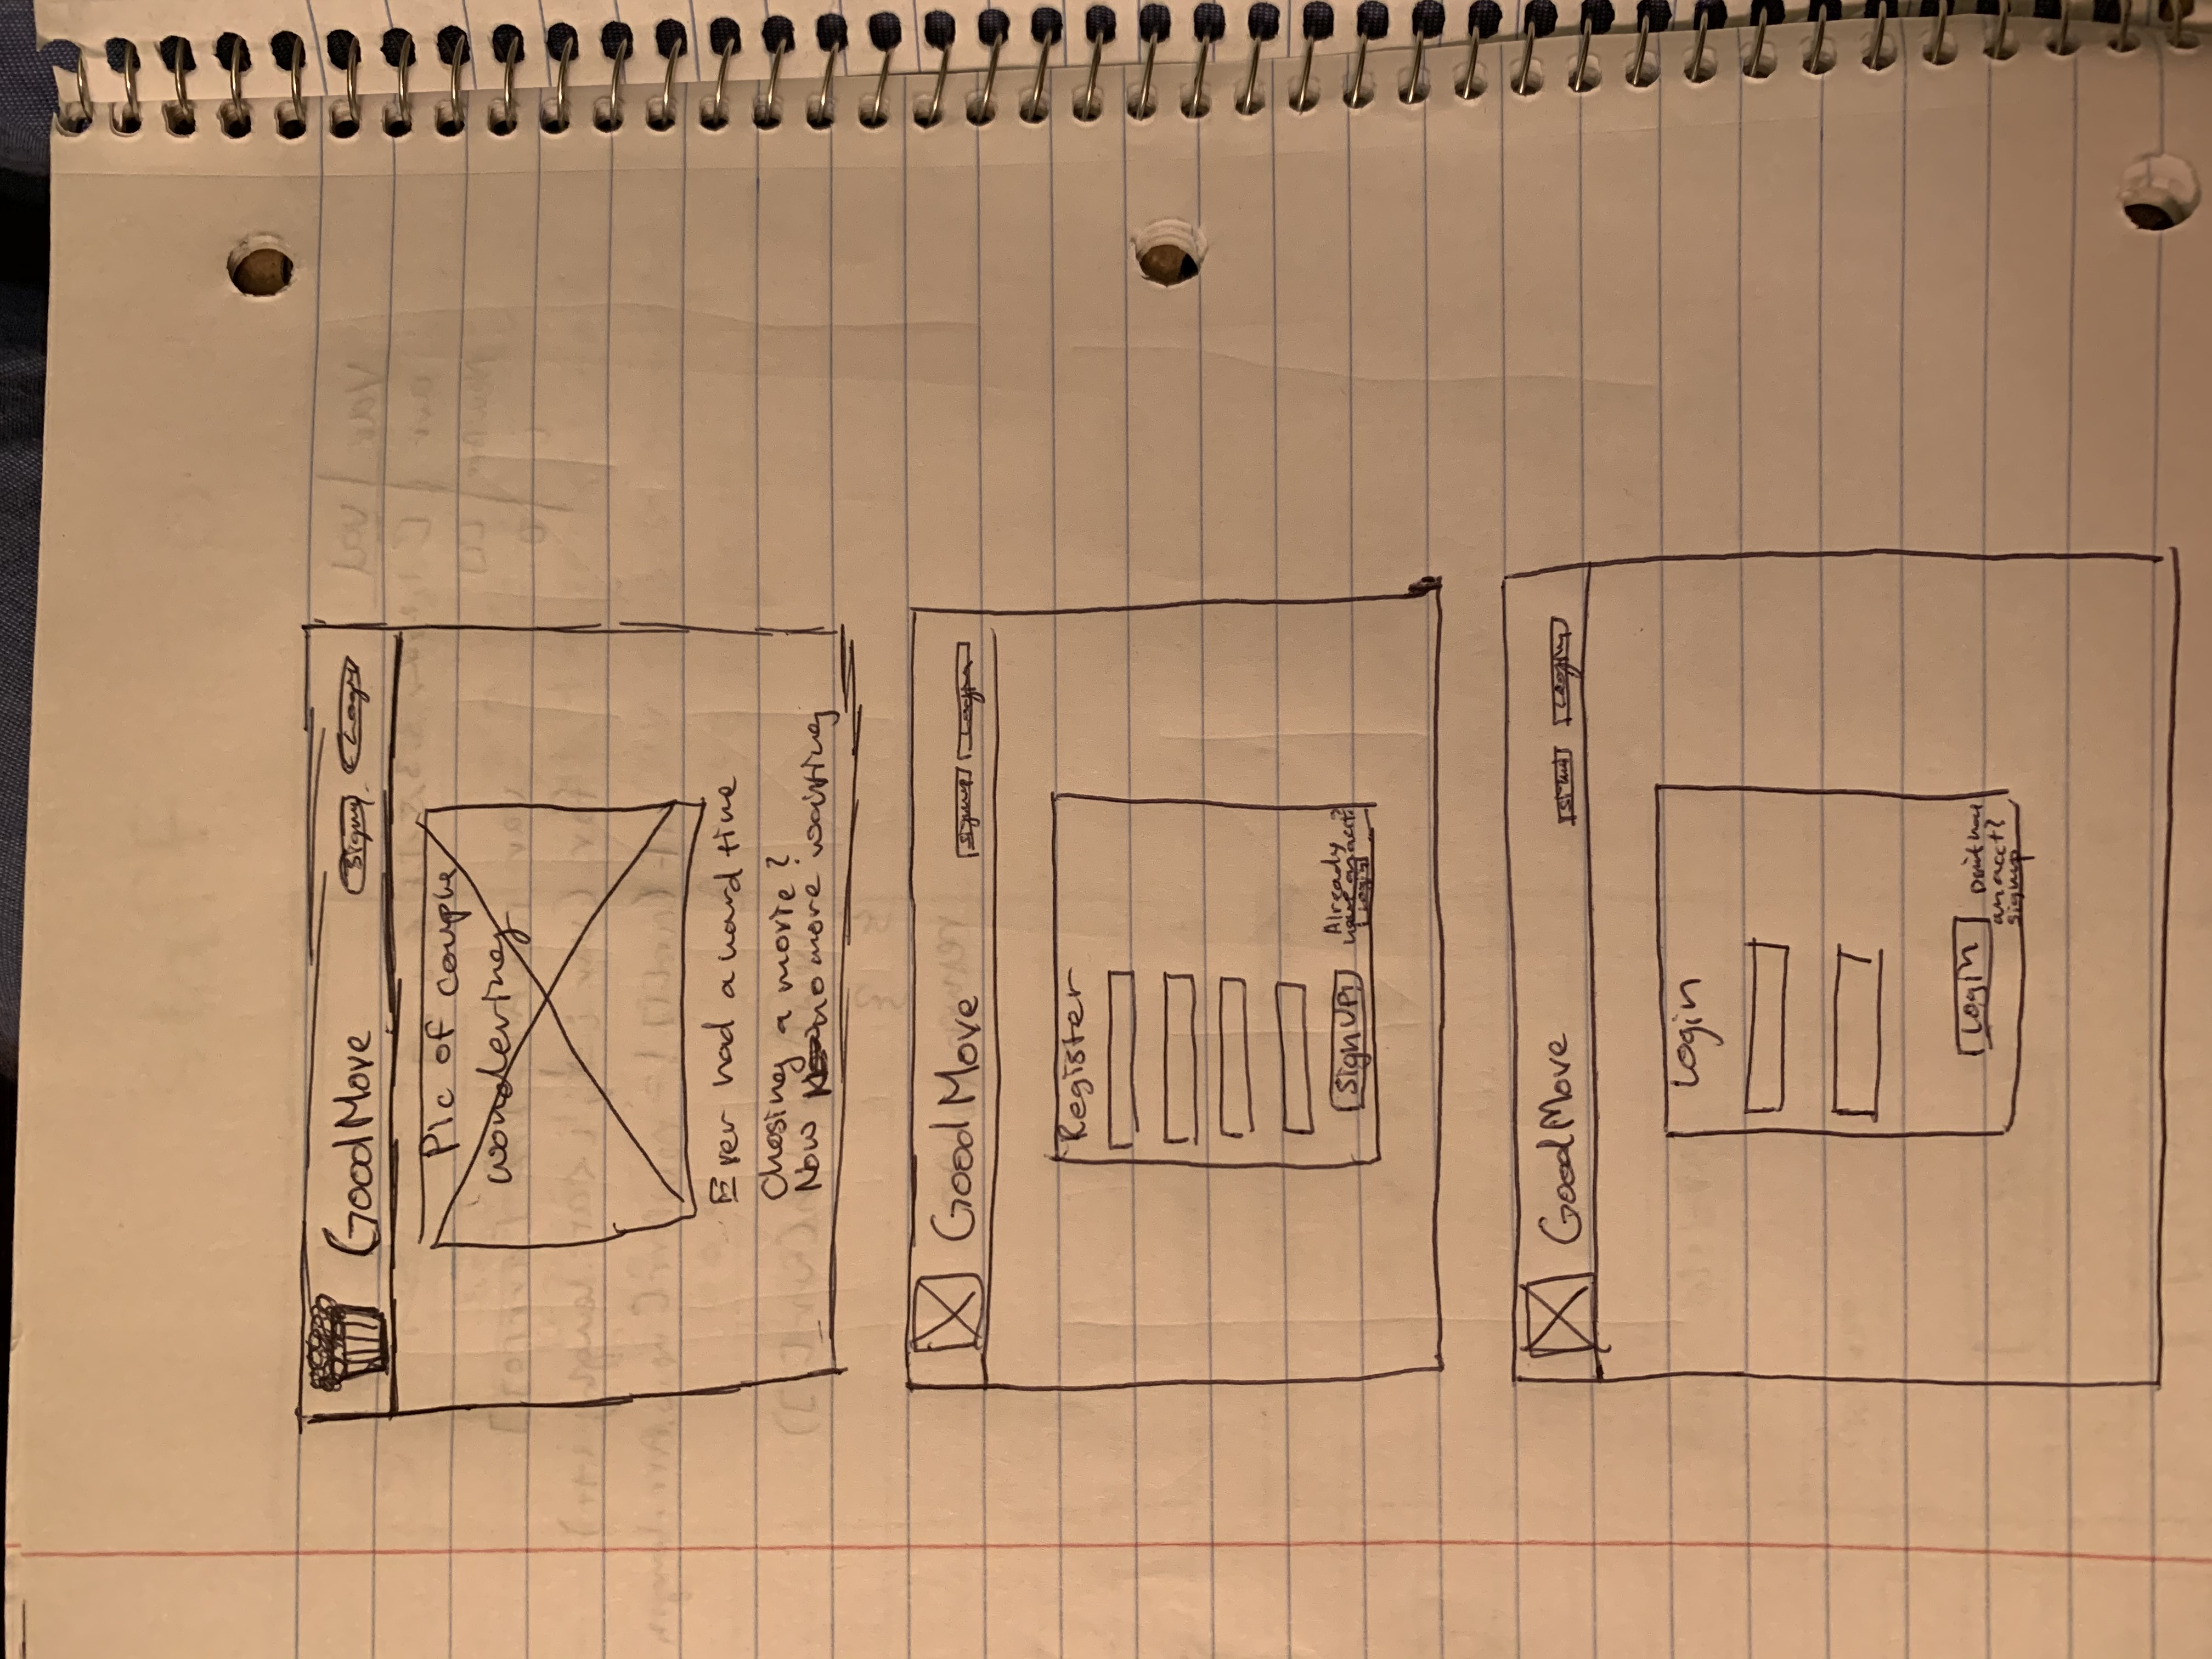 GoodMove
Signup
Login
Pic of couple
wondering
Ever had a hard time
Chosing a movie?
Now no more waiting
Good Move
Signup
Login
Register
Sign UP!
Already
have an acct?
Login
GoodMove
Login
Login
Don't have
an acct?
Signup